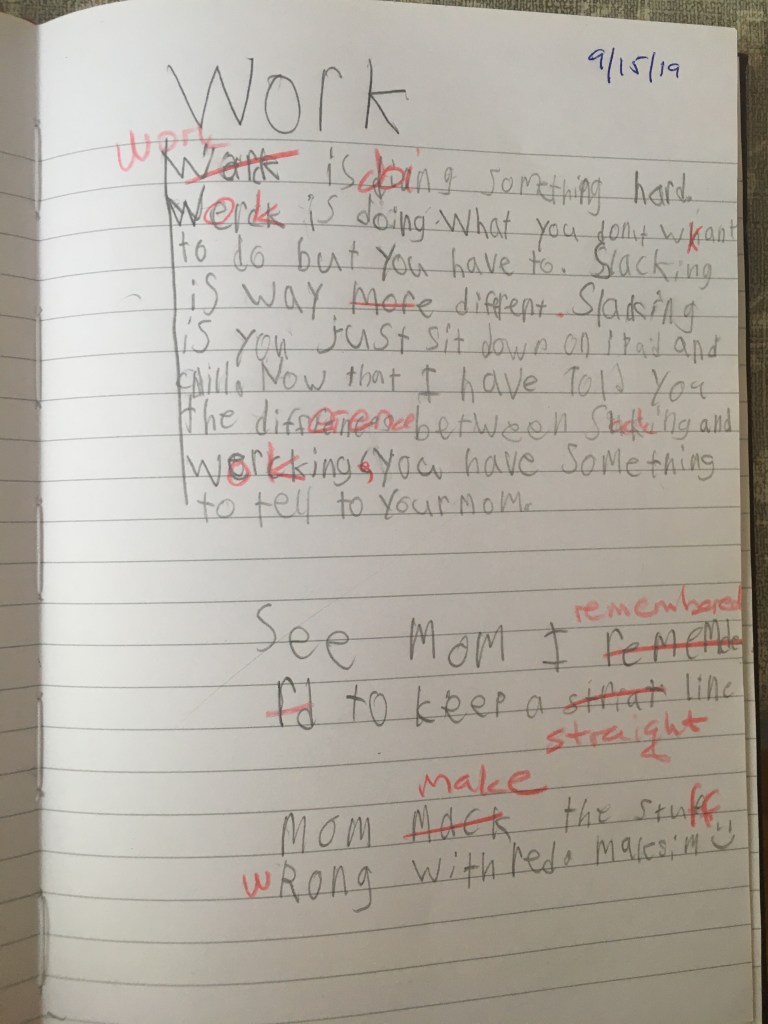 9/15/19
Work
work
Wark is doing something hard.
Work is doing what you dont want
to do but you have to. Slacking
is way more different. Slacking
is you just sit down on ipad and
chill. Now that I have Told you
the difference between Slacking and
working, you have something
to tell to your mom.
remembered
See Mom I rememde
rd to keep a line
straight
make
Mom Mack the stuff
wRong with red.